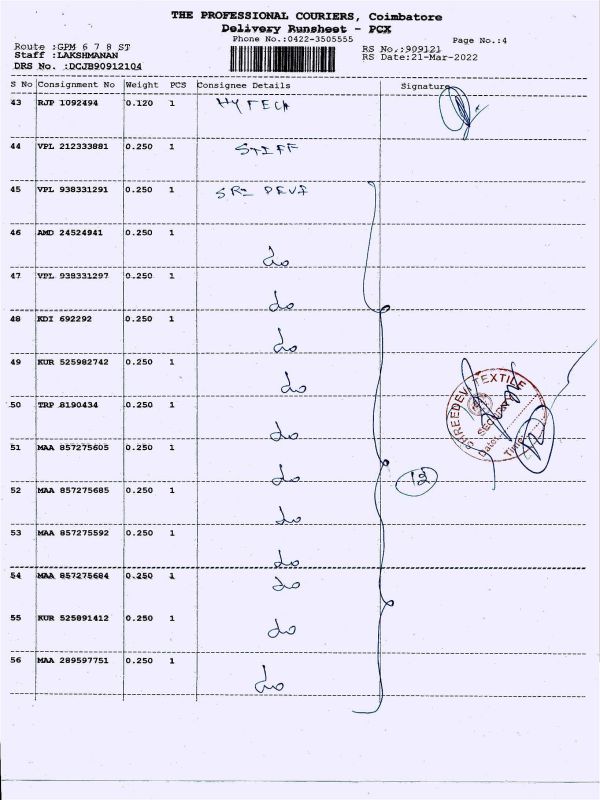 THE PROFESSIONAL COURIERS, Coimbatore
Delivery Runsheet - PCX
Phone No.:0422-3505555
Page No.:4
Route :GPM 6 7 8 ST
RS No.:909121
Staff :LAKSHMANAN
RS Date:21-Mar-2022
DRS No. :DCJB90912104
S No Consignment No Weight PCS Consignee Details Signature
43 RJP 1092494 0.120 1 HYTECH
44 VPL 212333881 0.250 1 STIFF
45 VPL 938331291 0.250 1 SRI DEVI
46 AMD 24524941 0.250 1 do
47 VPL 938331297 0.250 1 do
48 KDI 692292 0.250 1 do
49 KUR 525982742 0.250 1 do
50 TRP 8190434 0.250 1 do
51 MAA 857275605 0.250 1 do
52 MAA 857275685 0.250 1 do
53 MAA 857275592 0.250 1 do
54 MAA 857275684 0.250 1 do
55 KUR 525891412 0.250 1 do
56 MAA 289597751 0.250 1 do
12
SHREEDEVI TEXTILE
SECURITY
Date:
Time: